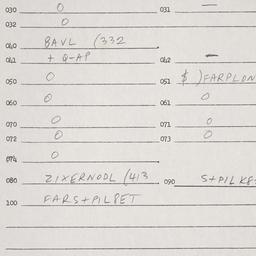 030 0 031 —
032 0
040 BAVL (332
041 + Q-AP 042 —
050 0 051 $ ) FARPLON
060 0 061 0
070 0 071 0
072 0 073 0
074 0
080 ZIXERNODL (413 090 S+PILK8
100 FARS+PILPET